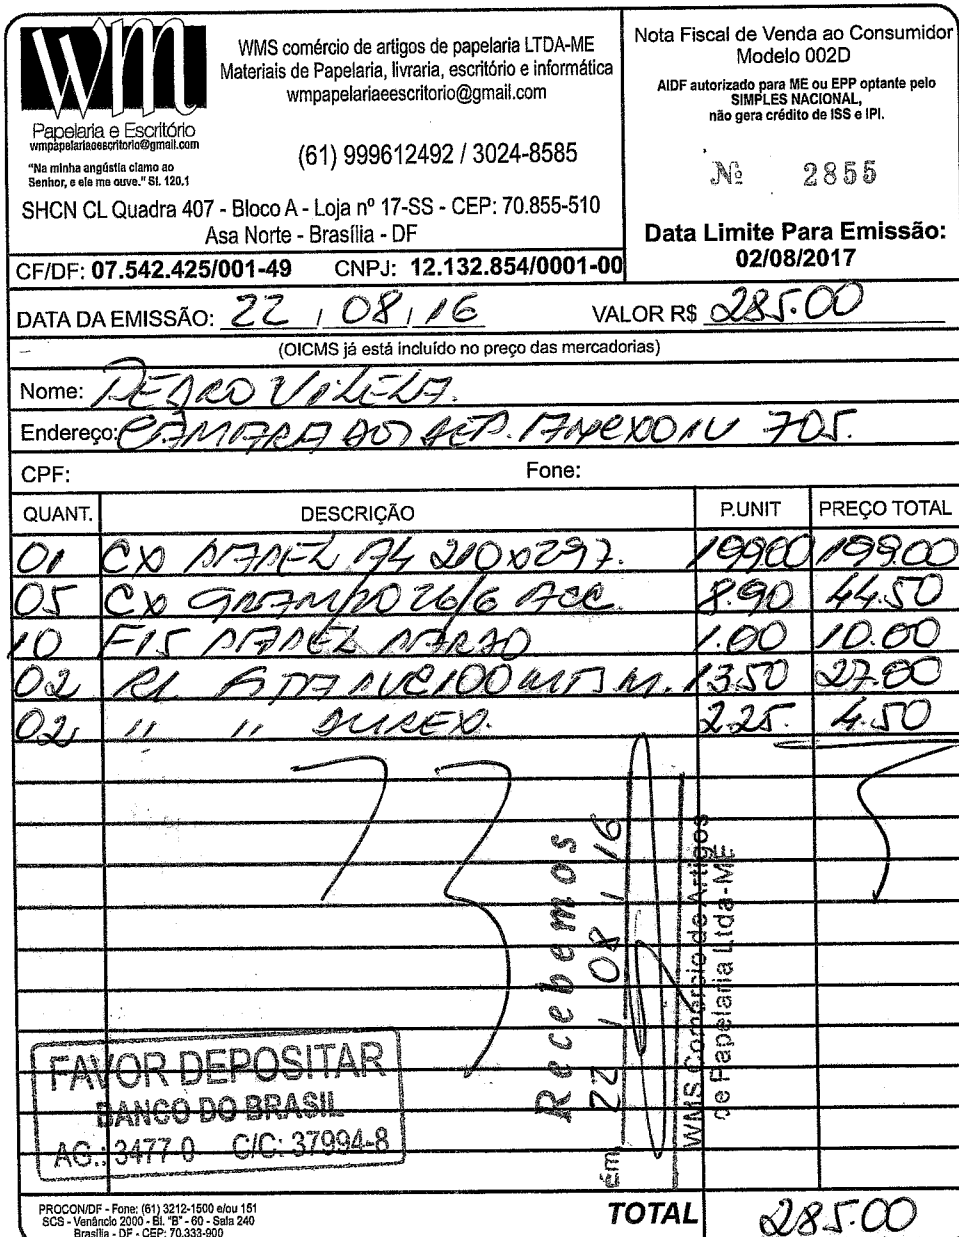 wm
Papelaria e Escritório
wmpapelariaeescritorio@gmail.com
"Na minha angústia clamo ao
Senhor, e ele me ouve." Sl. 120.1
WMS comércio de artigos de papelaria LTDA-ME
Materiais de Papelaria, livraria, escritório e informática
wmpapelariaeescritorio@gmail.com
(61) 999612492 / 3024-8585
SHCN CL Quadra 407 - Bloco A - Loja nº 17-SS - CEP: 70.855-510
Asa Norte - Brasília - DF
CF/DF: 07.542.425/001-49 CNPJ: 12.132.854/0001-00
Nota Fiscal de Venda ao Consumidor
Modelo 002D
AIDF autorizado para ME ou EPP optante pelo
SIMPLES NACIONAL,
não gera crédito de ISS e IPI.
Nº 2855
Data Limite Para Emissão:
02/08/2017
DATA DA EMISSÃO: 22 / 08 / 16 VALOR R$ 285.00
(OICMS já está incluído no preço das mercadorias)
Nome: PEDRO VILELA.
Endereço: CÂMARA DOS DEP. ANEXO IV 705.
CPF: Fone:
QUANT. DESCRIÇÃO P.UNIT PREÇO TOTAL
01 CX PAPEL A4 210x297. 199.00 199.00
05 CX GRAMPO 26/6 ACC. 8.90 44.50
10 FLS PAPEL PARDO 1.00 10.00
02 RL FITA PVC 100 MTS M. 13.50 27.00
02 " " DUREX. 2.25. 4.50
Recebemos
em 22 / 08 / 16
WMS Comercio de Artigos
de Papelaria Ltda-ME
FAVOR DEPOSITAR
BANCO DO BRASIL
AG.: 3477-0 C/C: 37994-8
PROCON/DF - Fone: (61) 3212-1500 e/ou 151
SCS - Venâncio 2000 - Bl. "B" - 60 - Sala 240
Brasília - DF - CEP: 70.333-900
TOTAL 285.00